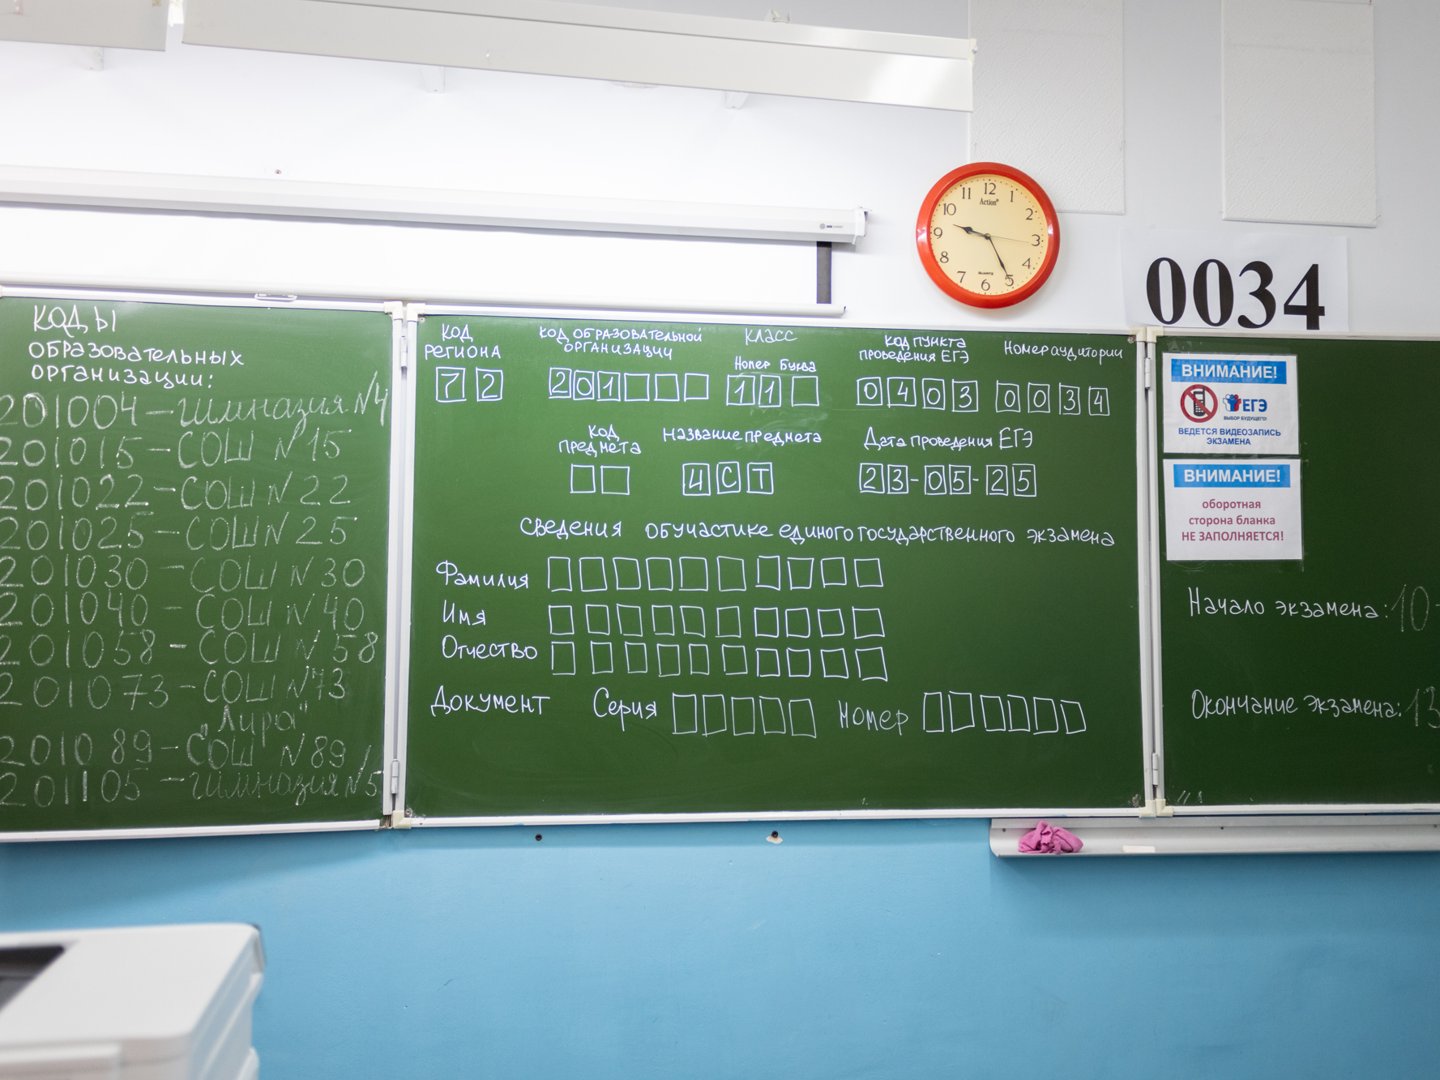 КОДЫ
ОБРАЗОВАТЕЛЬНЫХ
ОРГАНИЗАЦИИ:
201004 – гимназия №4
201015 – СОШ №15
201022 – СОШ №22
201025 – СОШ №25
201030 – СОШ №30
201040 – СОШ №40
201058 – СОШ №58
201073 – СОШ №73
"Лира"
201089 – СОШ №89
201105 – гимназия №5
КОД РЕГИОНА
72
КОД ОБРАЗОВАТЕЛЬНОЙ ОРГАНИЗАЦИИ
201
КЛАСС
Номер Буква
11
КОД ПУНКТА ПРОВЕДЕНИЯ ЕГЭ
0403
Номер аудитории
0034
КОД ПРЕДМЕТА
Название предмета
ЧСТ
Дата проведения ЕГЭ
23-05-25
Сведения об участике единого государственного экзамена
Фамилия
Имя
Отчество
Документ Серия Номер
12 1 2 3 4 5 6 7 8 9 10 11
Action
QUARTZ
0034
ВНИМАНИЕ!
ЕГЭ
ВЫБОР БУДУЩЕГО!
ВЕДЕТСЯ ВИДЕОЗАПИСЬ
ЭКЗАМЕНА
ВНИМАНИЕ!
оборотная
сторона бланка
НЕ ЗАПОЛНЯЕТСЯ!
Начало экзамена: 10
Окончание экзамена: 13